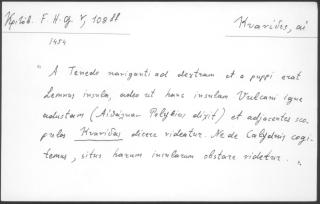 Kritób. F. H. G. V, 108 ll
Kvarides, ai
1454
"A Tenedo naviganti ad dextram et a puppi erat
Lemnus insula, adeo ut hanc insulam Vulcani igne
adustam (Polybius dixit) et adjacentes sco-
pulos Kvaridas dicere videatur. Ne de Calydnis cogi-
temus, situs harum insularum obstare videtur."